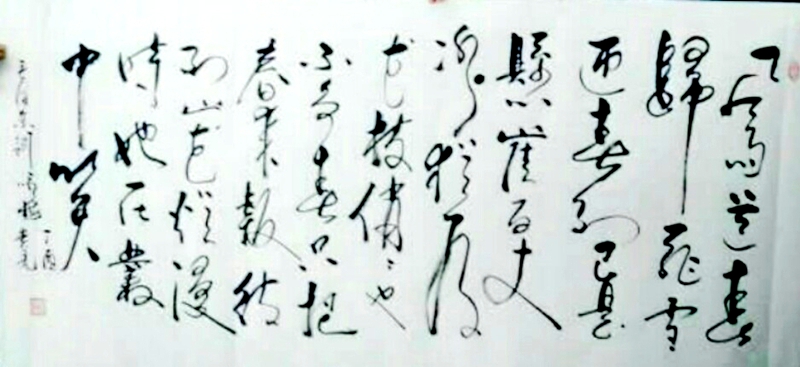 風雨送春
歸飛雪
迎春到已是
懸崖百丈
冰猶有
花枝俏々也
不爭春只把
春來報待
到山花爛漫
時她在叢
中笑
毛泽東詞咏梅
丁酉